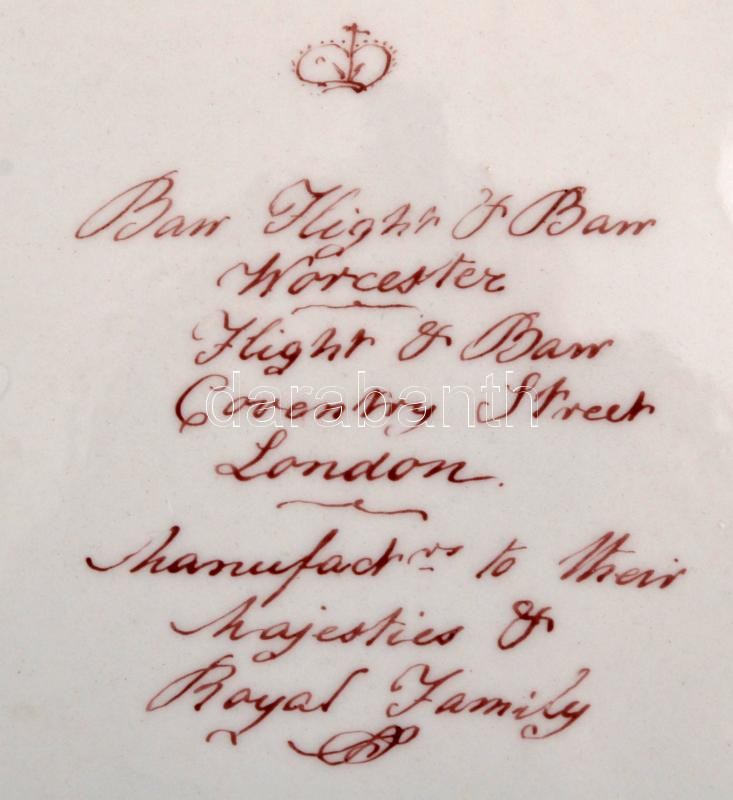 Barr Flight & Barr
Worcester
Flight & Barr
Coventry Street
London.
Manufactrs to their
Majesties &
Royal Family
darabanth